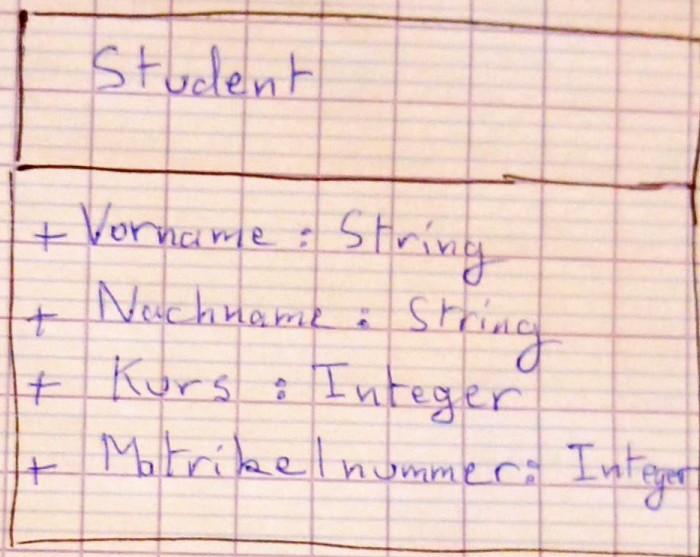 Student
+ Vorname : String
+ Nachname : String
+ Kurs : Integer
+ Matrikelnummer : Integer